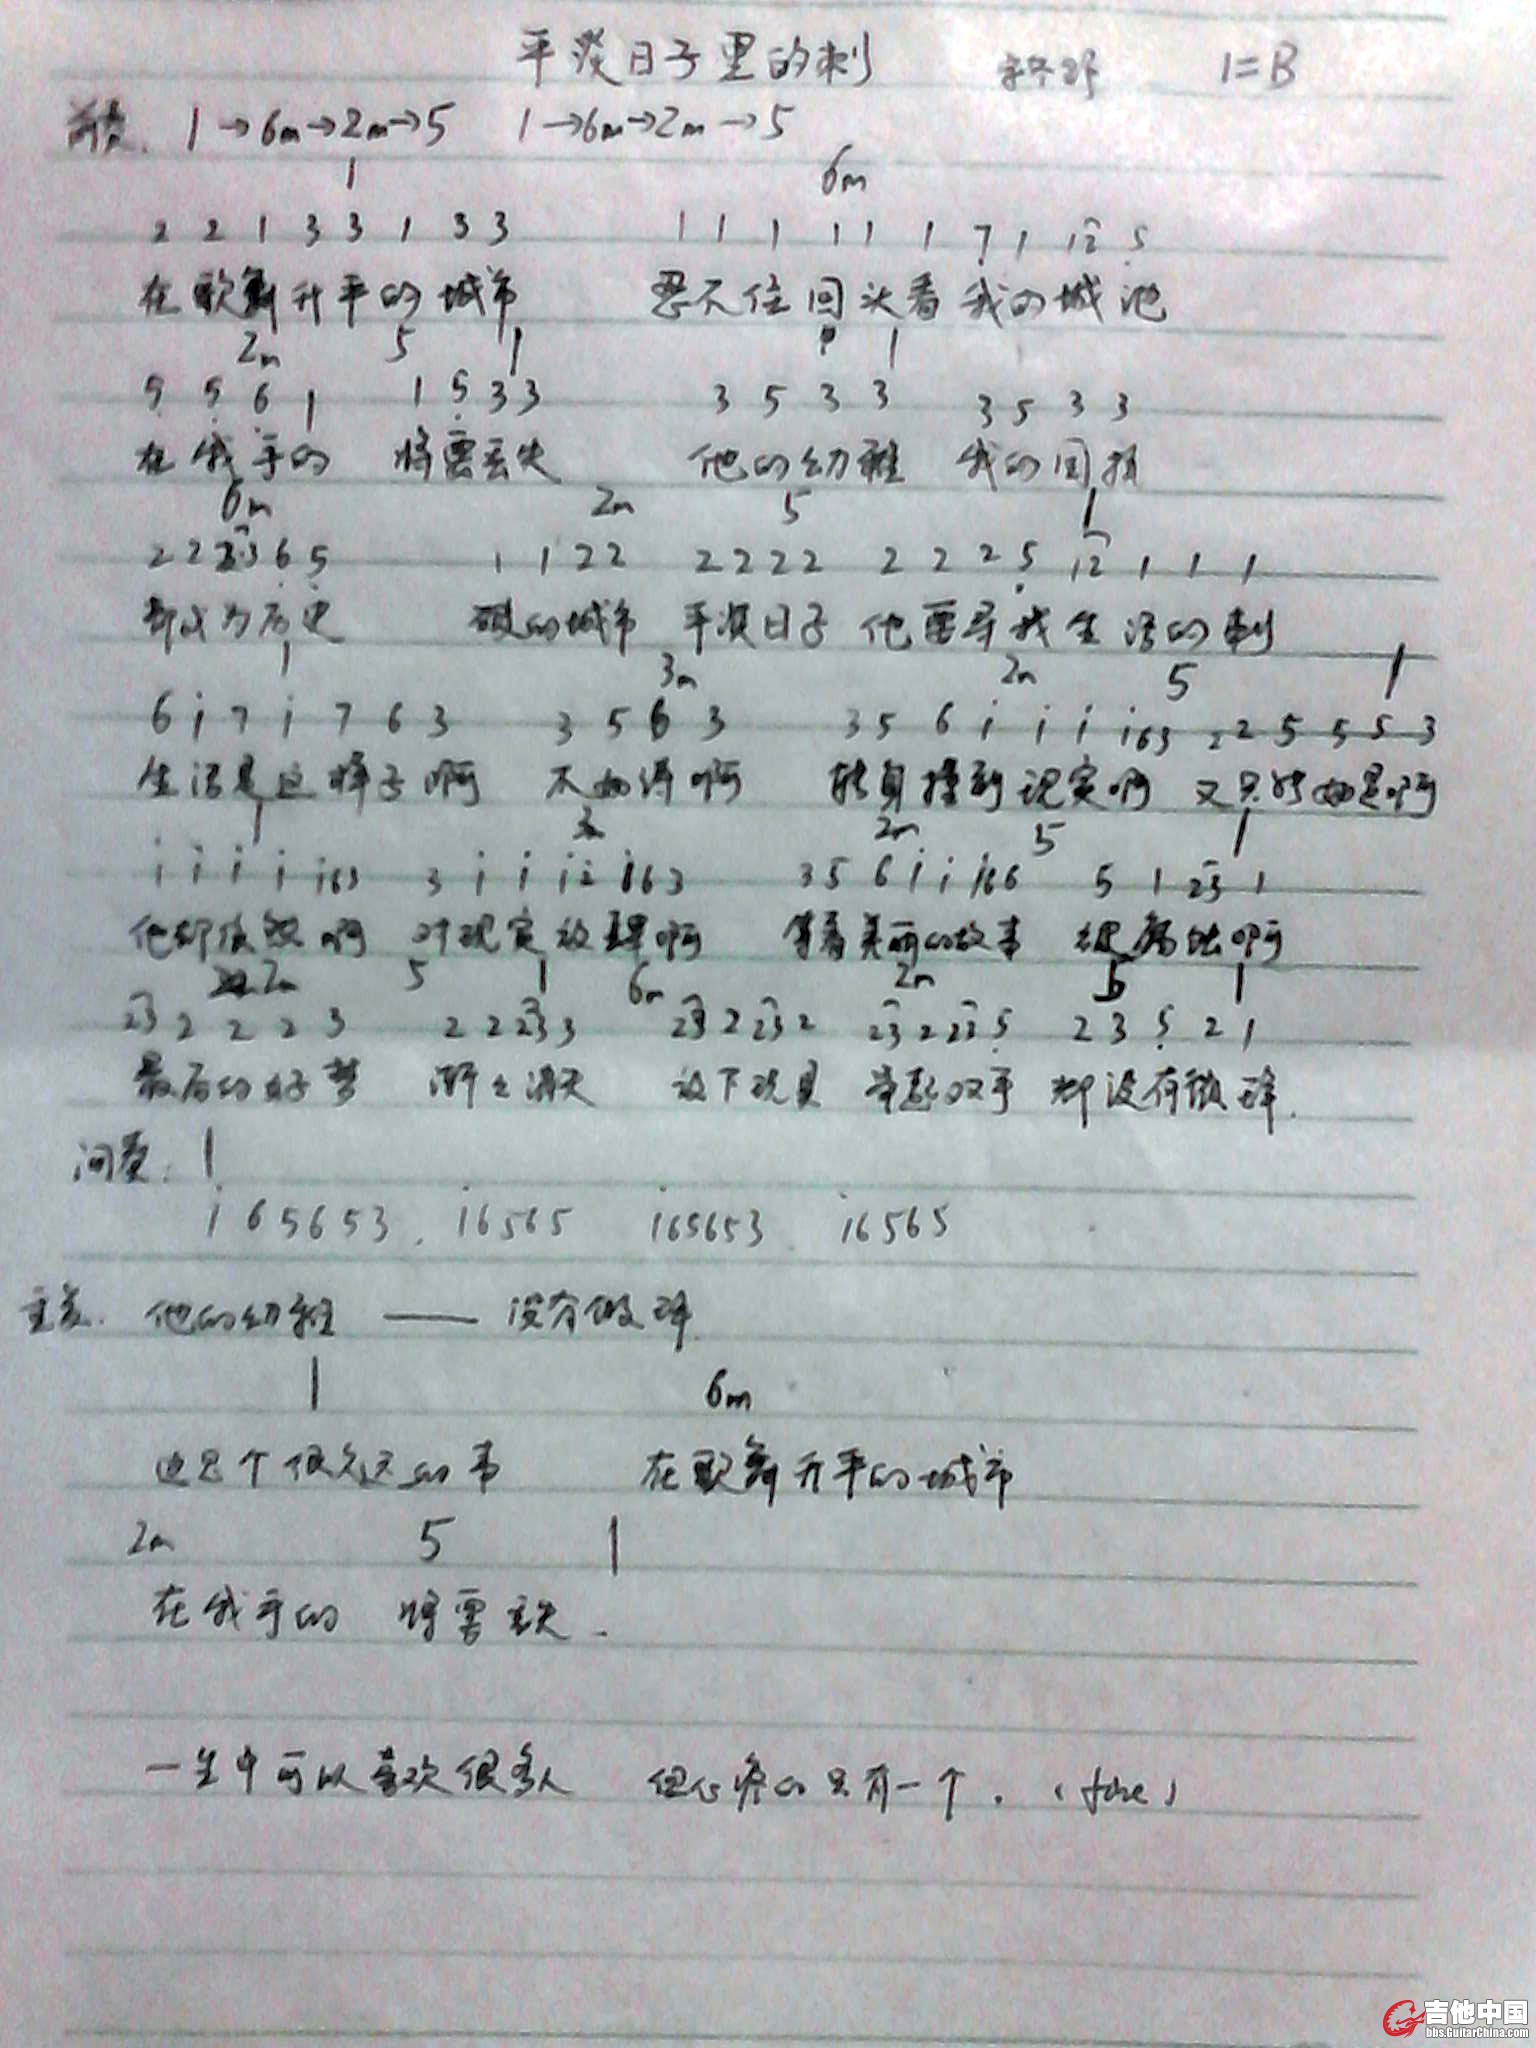 平淡日子里的刺 宋冬野 1=B
前奏. 1→6m→2m→5 1→6m→2m→5
1 6m
2 2 1 3 3 1 3 3 1 1 1 1 1 1 7 1 12 5
在歌舞升平的城市 忍不住回头看我的城池
2m 5 1 1
5 5 6 1 1 5 3 3 3 5 3 3 3 5 3 3
在我手的 将要丢失 他的幼稚 我的固执
6m 2m 5 1
2 2 3 6 5 1 1 2 2 2 2 2 2 2 2 2 5 12 1 1 1
都成为历史 破的城市 平淡日子 他要寻找生活的刺
1 3m 2m 5 1
6 i 7 i 7 6 3 3 5 6 3 3 5 6 i i i i63 2 2 5 5 5 3
生活是这样子啊 不如诗啊 转身撞到现实啊 又只能如是啊
1 2m 5 1
i i i i i63 3 i i i2 i63 3 5 6 i i i66 5 1 23 1
他却依然啊 对现实放肆啊 等着美丽的故事 啊
2m 5 1 6m 2m 5 1
23 2 2 2 3 2 2 23 3 23 2 23 2 23 2 23 5 2 3 5 2 1
最后的好梦 渐渐消失 放下玩具 举起双手 都没有微
间奏: 1
i 6 5 6 5 3 . i6565 i65653 i6565
主歌. 他的幼稚 —— 没有
1 6m
这是个很久远的事 在歌舞升平的城市
2m 5 1
在我手的 将要丢失.
一生中可以喜欢很多人 但心疼的只有一个. (fine)
吉他中国
bbs.GuitarChina.com